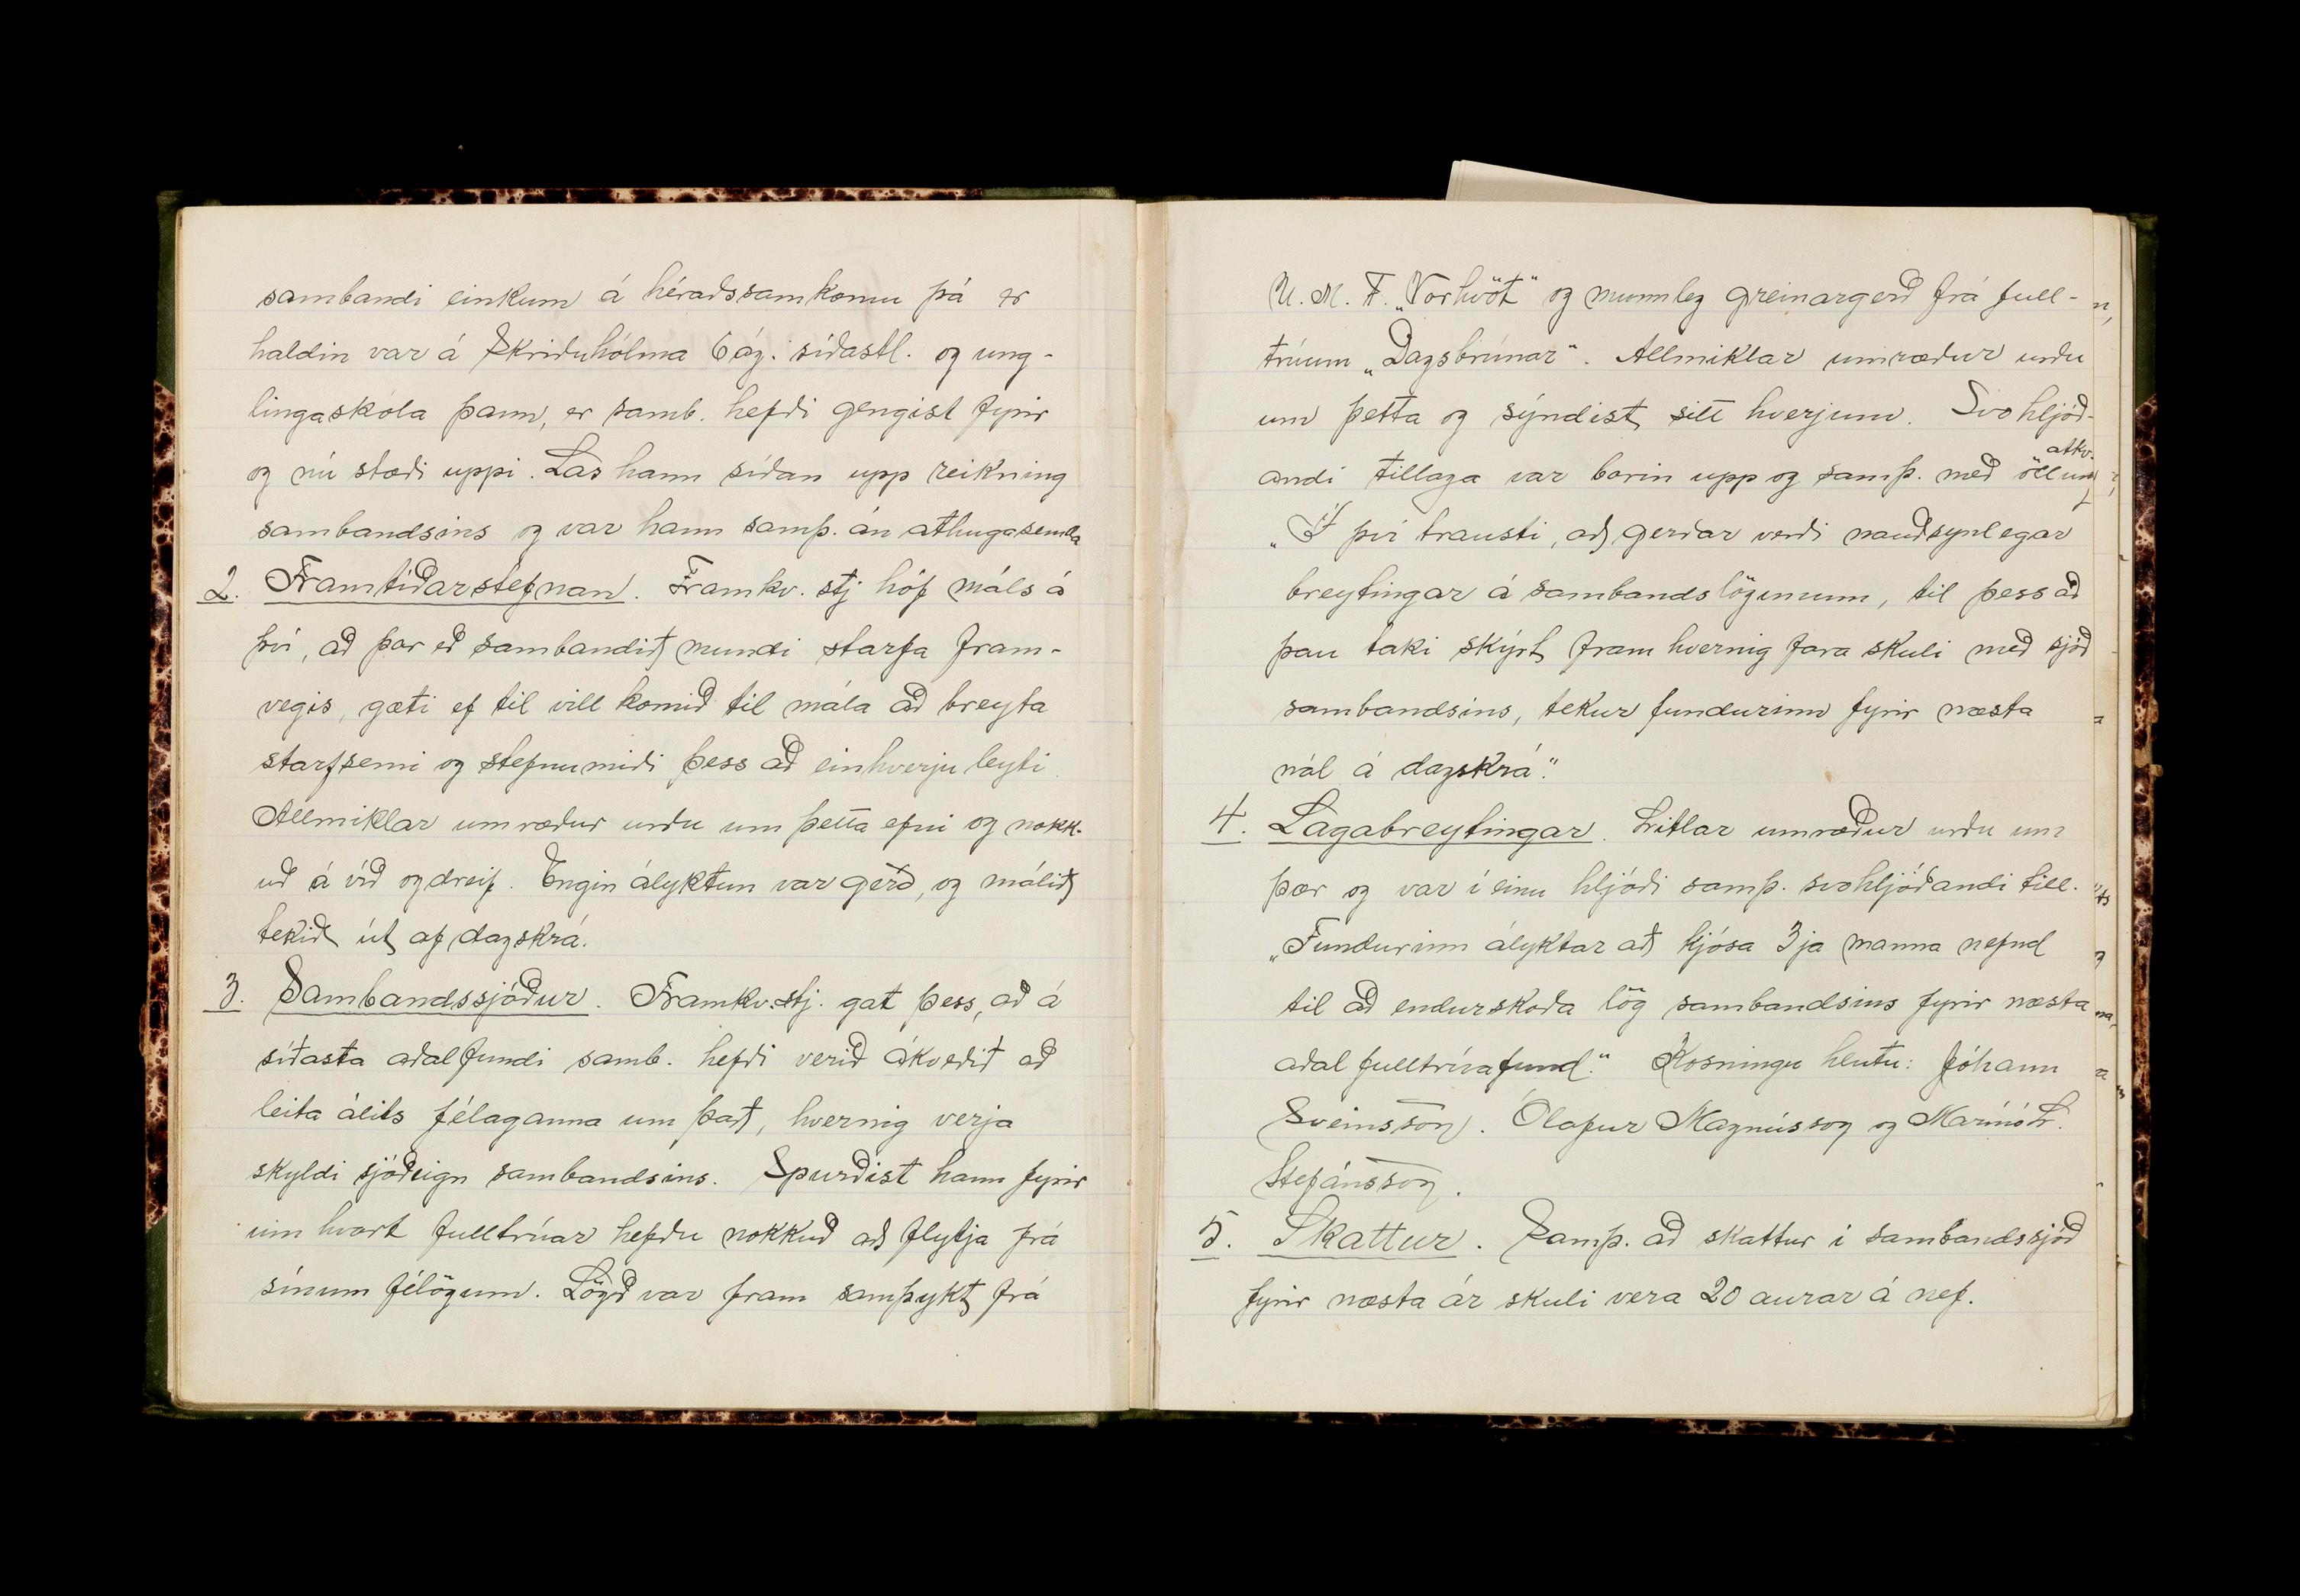 sambandi einkum á héraðssamkomu þá er
haldin var á Skriðuhólma 6 ág. síðastl. og ung-
lingaskóla þann, er samb. hefði gengist fyrir
og nú stæði uppi. Las hann síðan upp reikning
sambandsins og var hann samþ. án athugasemda
2. Framtíðarstefnan. Framkv. stj hóf máls á
því, að þar eð sambandið mundi starfa fram-
vegis, gæti ef til vill komið til mála að breyta
starfsemi og stefnumiði þess að einhverju leyti.
Allmiklar umræður urðu um þetta efni og nokk-
uð á víð og dreif. Engin ályktun var gerð, og málið
tekið út af dagskrá.
3. Sambandssjóður. Framkv. stj. gat þess, að á
síðasta aðalfundi samb. hefði verið ákveðið að
leita álits félaganna um það, hvernig verja
skyldi sjóðeign sambandsins. Spurðist hann fyrir
um hvort fulltrúar hefðu nokkuð að flytja frá
sínum félögum. Lögð var fram samþykt frá
U. M. F. „Vorhvöt" og munnleg greinargerð frá full-
trúum „Dagsbrúnar". Allmiklar umræður urðu
um þetta og sýndist sitt hverjum. Svohljóð-
andi tillaga var borin upp og samþ. með öllum atkv.
„Í því trausti, að gerðar verði nauðsynlegar
breytingar á sambandslögunum, til þess að
þau taki skýrt fram hvernig fara skuli með sjóð
sambandsins, tekur fundurinn fyrir næsta
mál á dagskrá".
4. Lagabreytingar. Litlar umræður urðu um
þær og var í einu hljóði samþ. svohljóðandi till.
„Fundurinn ályktar að kjósa 3ja manna nefnd
til að endurskoða lög sambandsins fyrir næsta
aðalfulltrúafund." Kosningu hlutu: Jóhann
Sveinsson. Ólafur Magnússon og Marinó L.
Stefánsson.
5. Skattur. Samþ. að skattur í sambandssjóð
fyrir næsta ár skuli vera 20 aurar á nef.